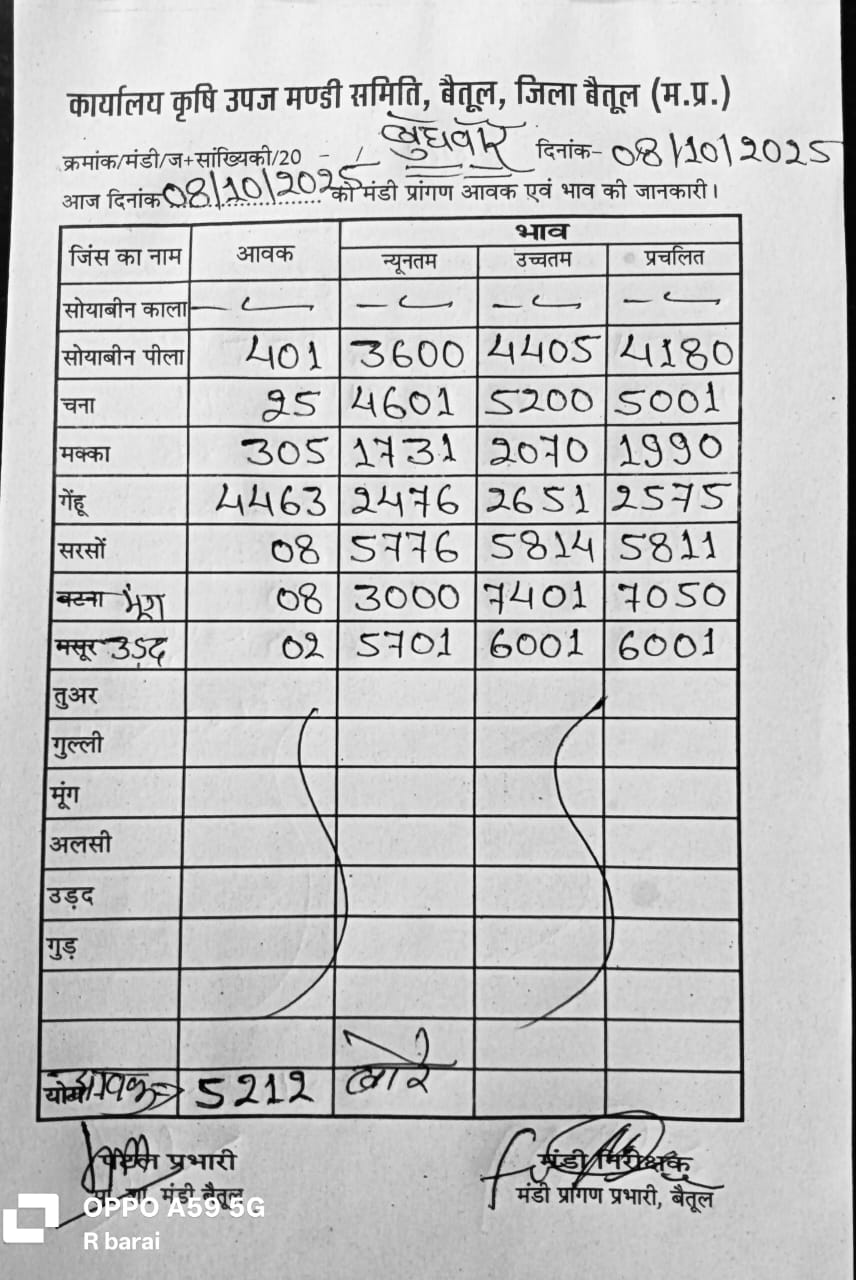 कार्यालय कृषि उपज मण्डी समिति, बैतूल, जिला बैतूल (म.प्र.)
क्रमांक/मंडी/ज+सांख्यिकी/20 - / बुधवार दिनांक- 08/10/2025
आज दिनांक 08/10/2025 को मंडी प्रांगण आवक एवं भाव की जानकारी।
जिंस का नाम आवक भाव
न्यूनतम उच्चतम प्रचलित
सोयाबीन काला — — — —
सोयाबीन पीला 401 3600 4405 4180
चना 25 4601 5200 5001
मक्का 305 1731 2070 1990
गेंहू 4463 2476 2651 2575
सरसों 08 5776 5814 5811
बटना मूंग 08 3000 7401 7050
मसूर उड़द 02 5701 6001 6001
तुअर
गुल्ली
मूंग
अलसी
उड़द
गुड़
योग आवक → 5212 बोरे
प्रभारी मंडी निरीक्षक
मंडी बैतूल मंडी प्रांगण प्रभारी, बैतूल
OPPO A59 5G
R barai